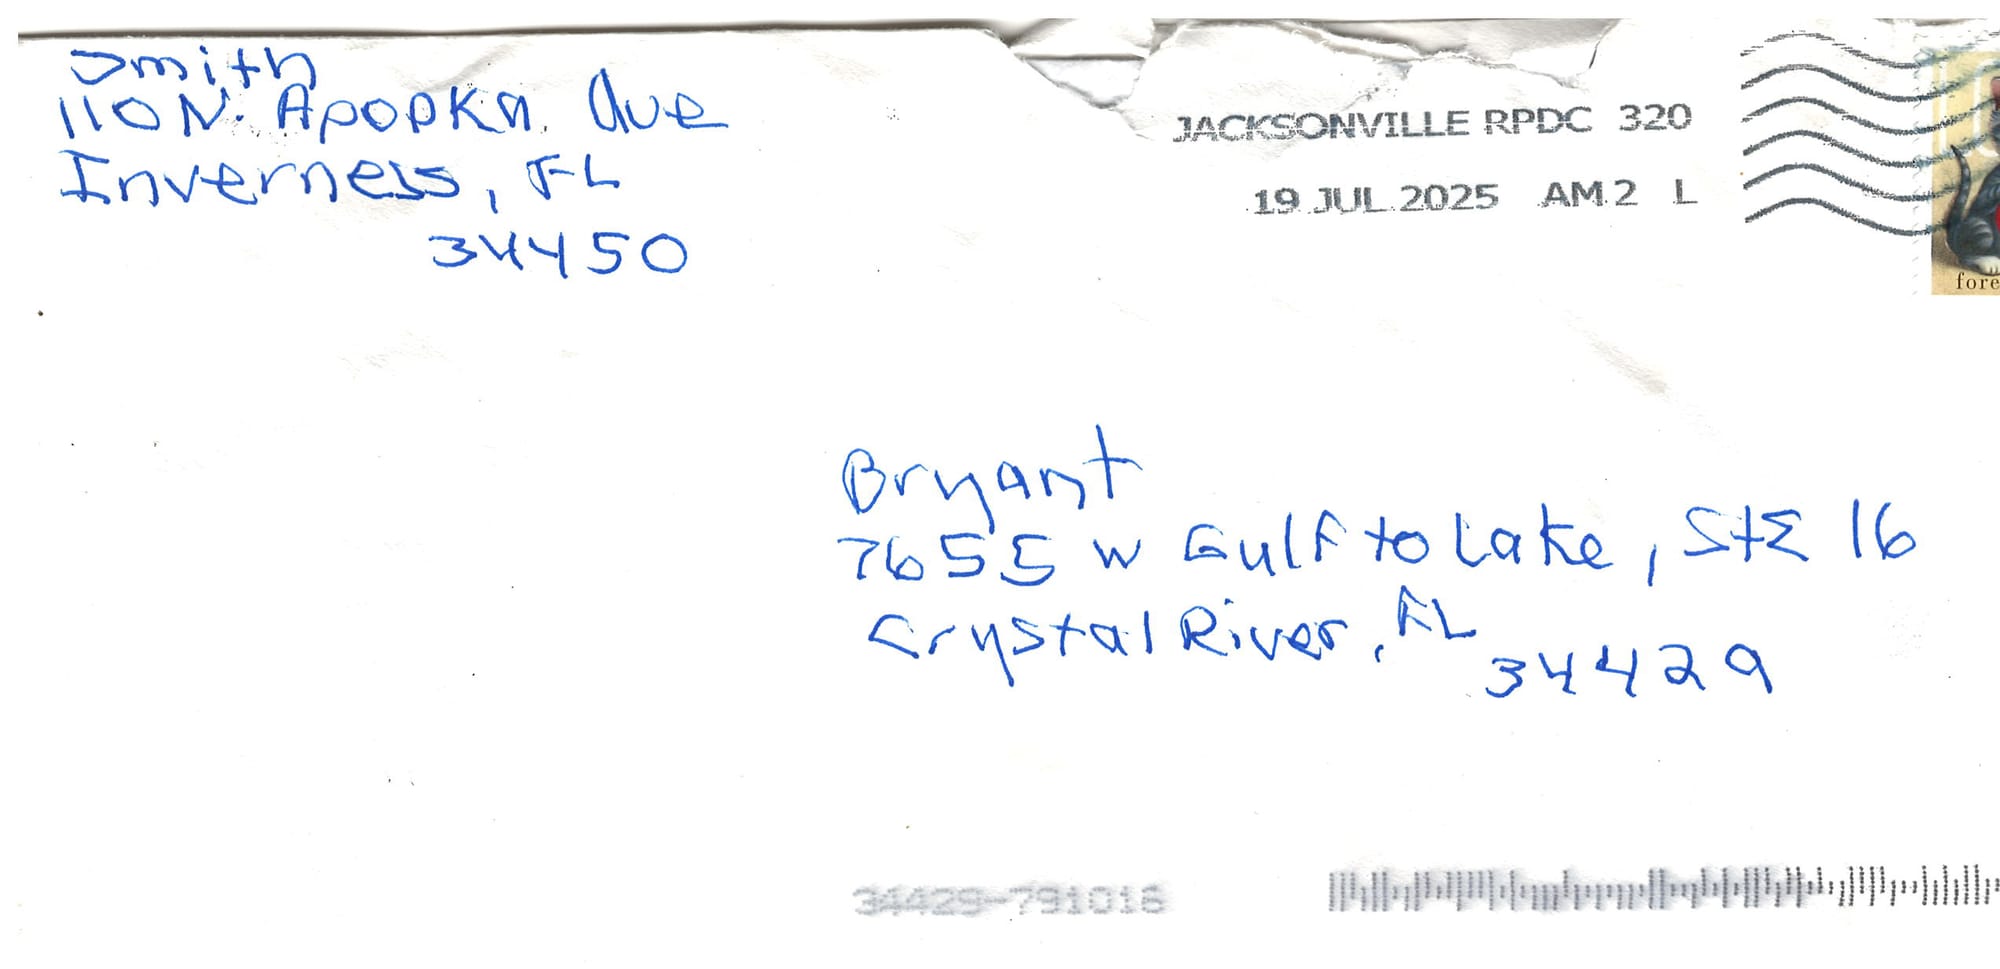 Smith
110 N. Apopka Ave
Inverness, FL
34450
JACKSONVILLE RPDC 320
19 JUL 2025 AM 2 L
fore
Bryant
7655 W Gulf to Lake, StE 16
Crystal River, FL
34429
34429-791016